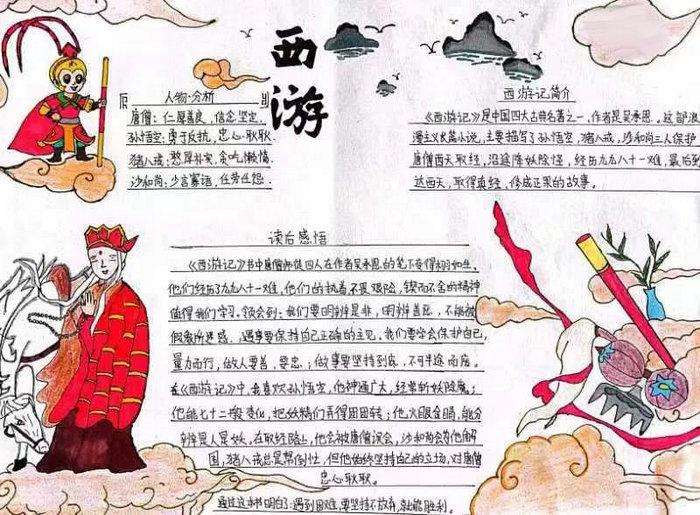 西游
人物·分析
唐僧：仁厚善良，信念坚定.
孙悟空：勇于反抗，忠心耿耿.
猪八戒：憨厚朴实，贪吃懒惰.
沙和尚：少言寡语，任劳任怨.
西游记简介
《西游记》是中国四大古典名著之一，作者是吴承恩。这部浪
漫主义长篇小说，主要描写了孙悟空，猪八戒，沙和尚三人保护
唐僧西天取经，沿途降妖除怪，经历九九八十一难，最后到
达西天，取得真经，修成正果的故事。
读后感悟
《西游记》书中唐僧师徒四人在作者吴承恩的笔下变得栩栩如生，
他们经历了九九八十一难，他们的执着、不畏艰险、锲而不舍的精神
值得我们学习。领会到：我们要明辨是非，明辨善恶，不能被
假象所迷惑，遇事要保持自己正确的主见，我们要学会保护自己，
量力而行，做人要善、要忠；做事要坚持到底，不可半途而废。
在《西游记》中，我喜欢孙悟空，他神通广大，经常斩妖除魔；
他能七十二般变化，把妖精们弄得团团转；他，火眼金睛，能分
辨是人是妖，在取经路上，他会被唐僧误会，沙和尚会为他解
围，猪八戒总是帮倒忙，但他始终坚持自己的立场，对唐僧
忠心耿耿。
通过这本书明白了：遇到困难，要坚持不放弃，就能胜利。